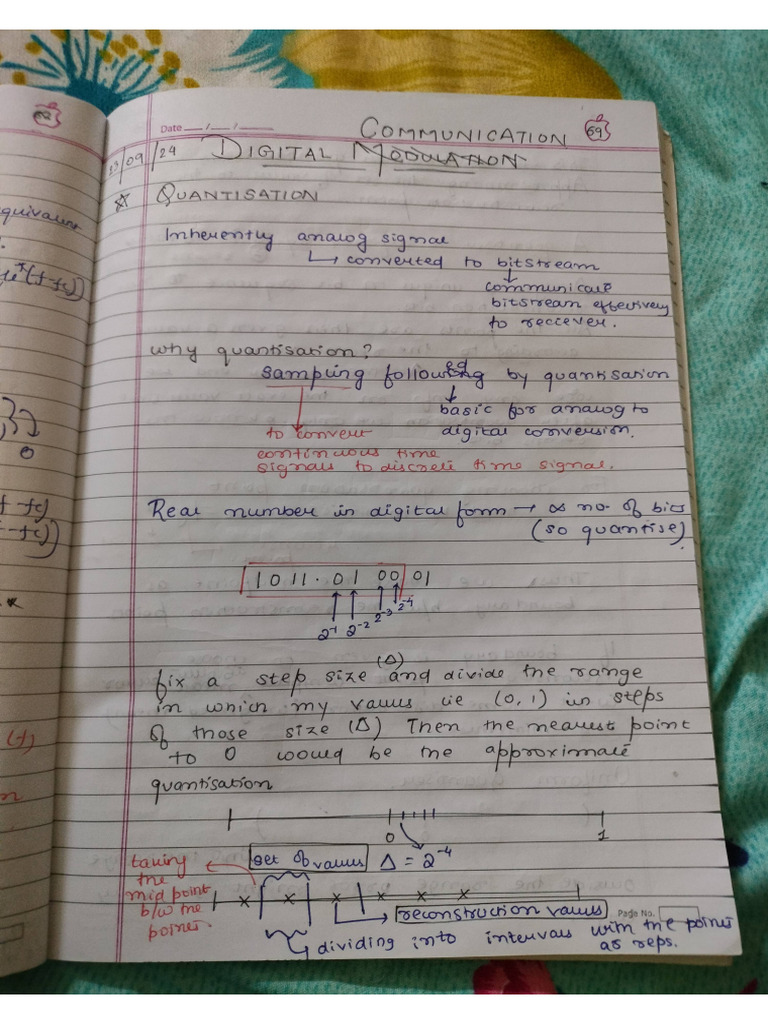 62
equivalent
0
(t)
Date
COMMUNICATION
59
23/09/24 DIGITAL MODULATION
QUANTISATION
Inherently analog signal
↳ converted to bitstream
↓
communicate
bitstream effectively
to reciever.
why quantisation?
sampling followed by quantisation
↓
basic for analog to
to convert digital conversion.
continuous time
signals to discrete time signal.
Real number in digital form → ∞ no. of bits
(so quantise)
1011.01 00 01
2⁻¹ 2⁻² 2⁻³ 2⁻⁴
(Δ)
fix a step size and divide the range
in which my values ie (0,1) in steps
of those size (Δ) Then the nearest point
to 0 would be the approximate
quantisation
0 1
taking set of values Δ = 2⁻⁴
the
midpoint
b/w the reconstruction values Page No.
points. dividing into intervals with the points
as reps.